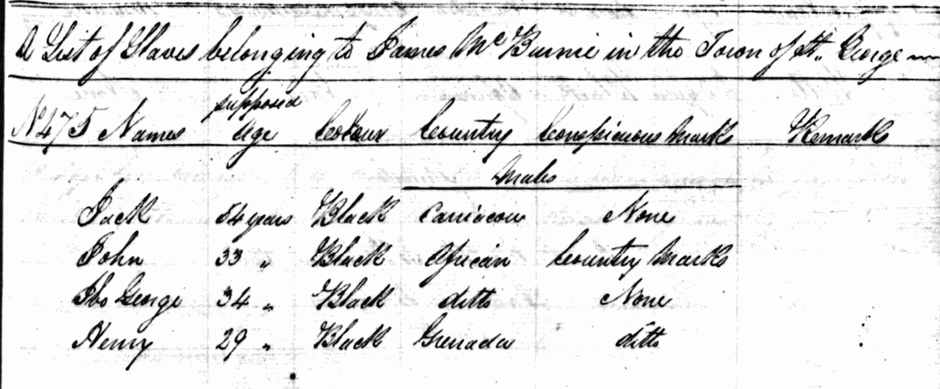 A List of Slaves belonging to James McBurnie in the Town of St. George
No 475 Names supposed Age Colour Country Conspicuous Marks Remarks
Males
Jack 54 years Black Carriacou None
John 33 " Black African Country Marks
Ibo George 34 " Black ditto None
Henry 29 " Black Grenada ditto